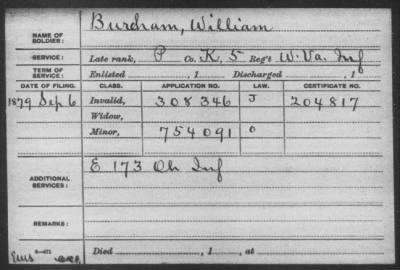 NAME OF SOLDIER: Burcham, William
SERVICE: Late rank, P Co. K, 5 Reg't W. Va. Inf
TERM OF SERVICE: Enlisted , 1 Discharged , 1
DATE OF FILING. CLASS. APPLICATION NO. LAW. CERTIFICATE NO.
1879 Sep 6 Invalid, 308346 J 204817
Widow,
Minor, 754091 O
ADDITIONAL SERVICES: E 173 Oh Inf
REMARKS:
Died , 1 , at